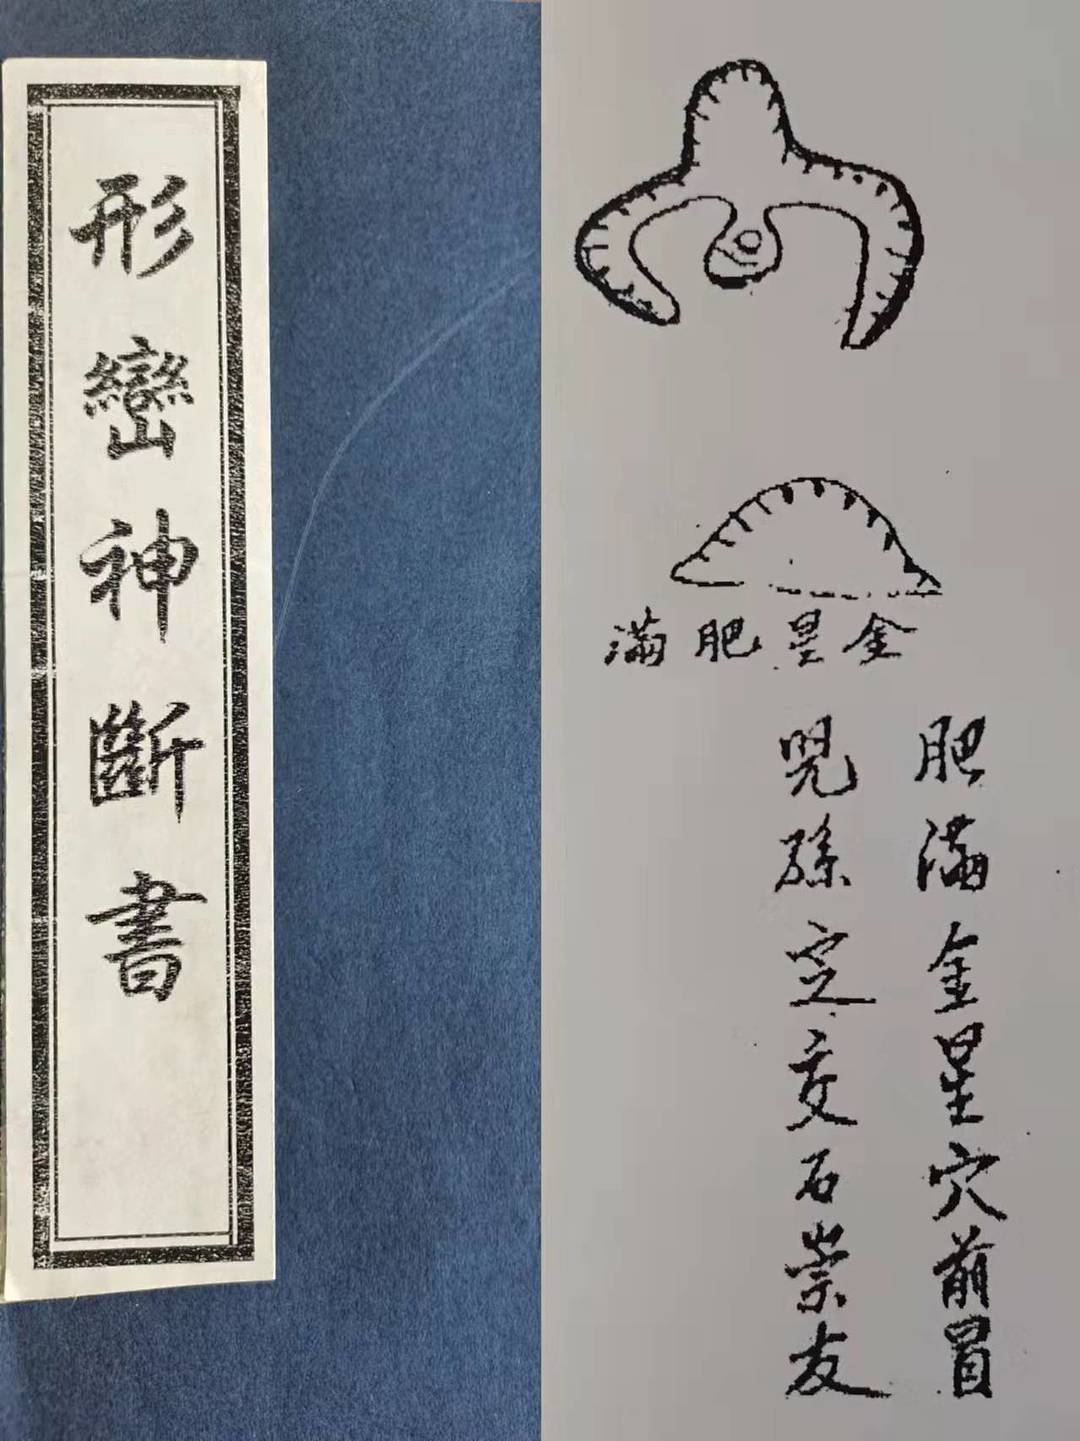 形巒神斷書
金星肥滿
肥滿金星穴前冒
児孫定交石崇友